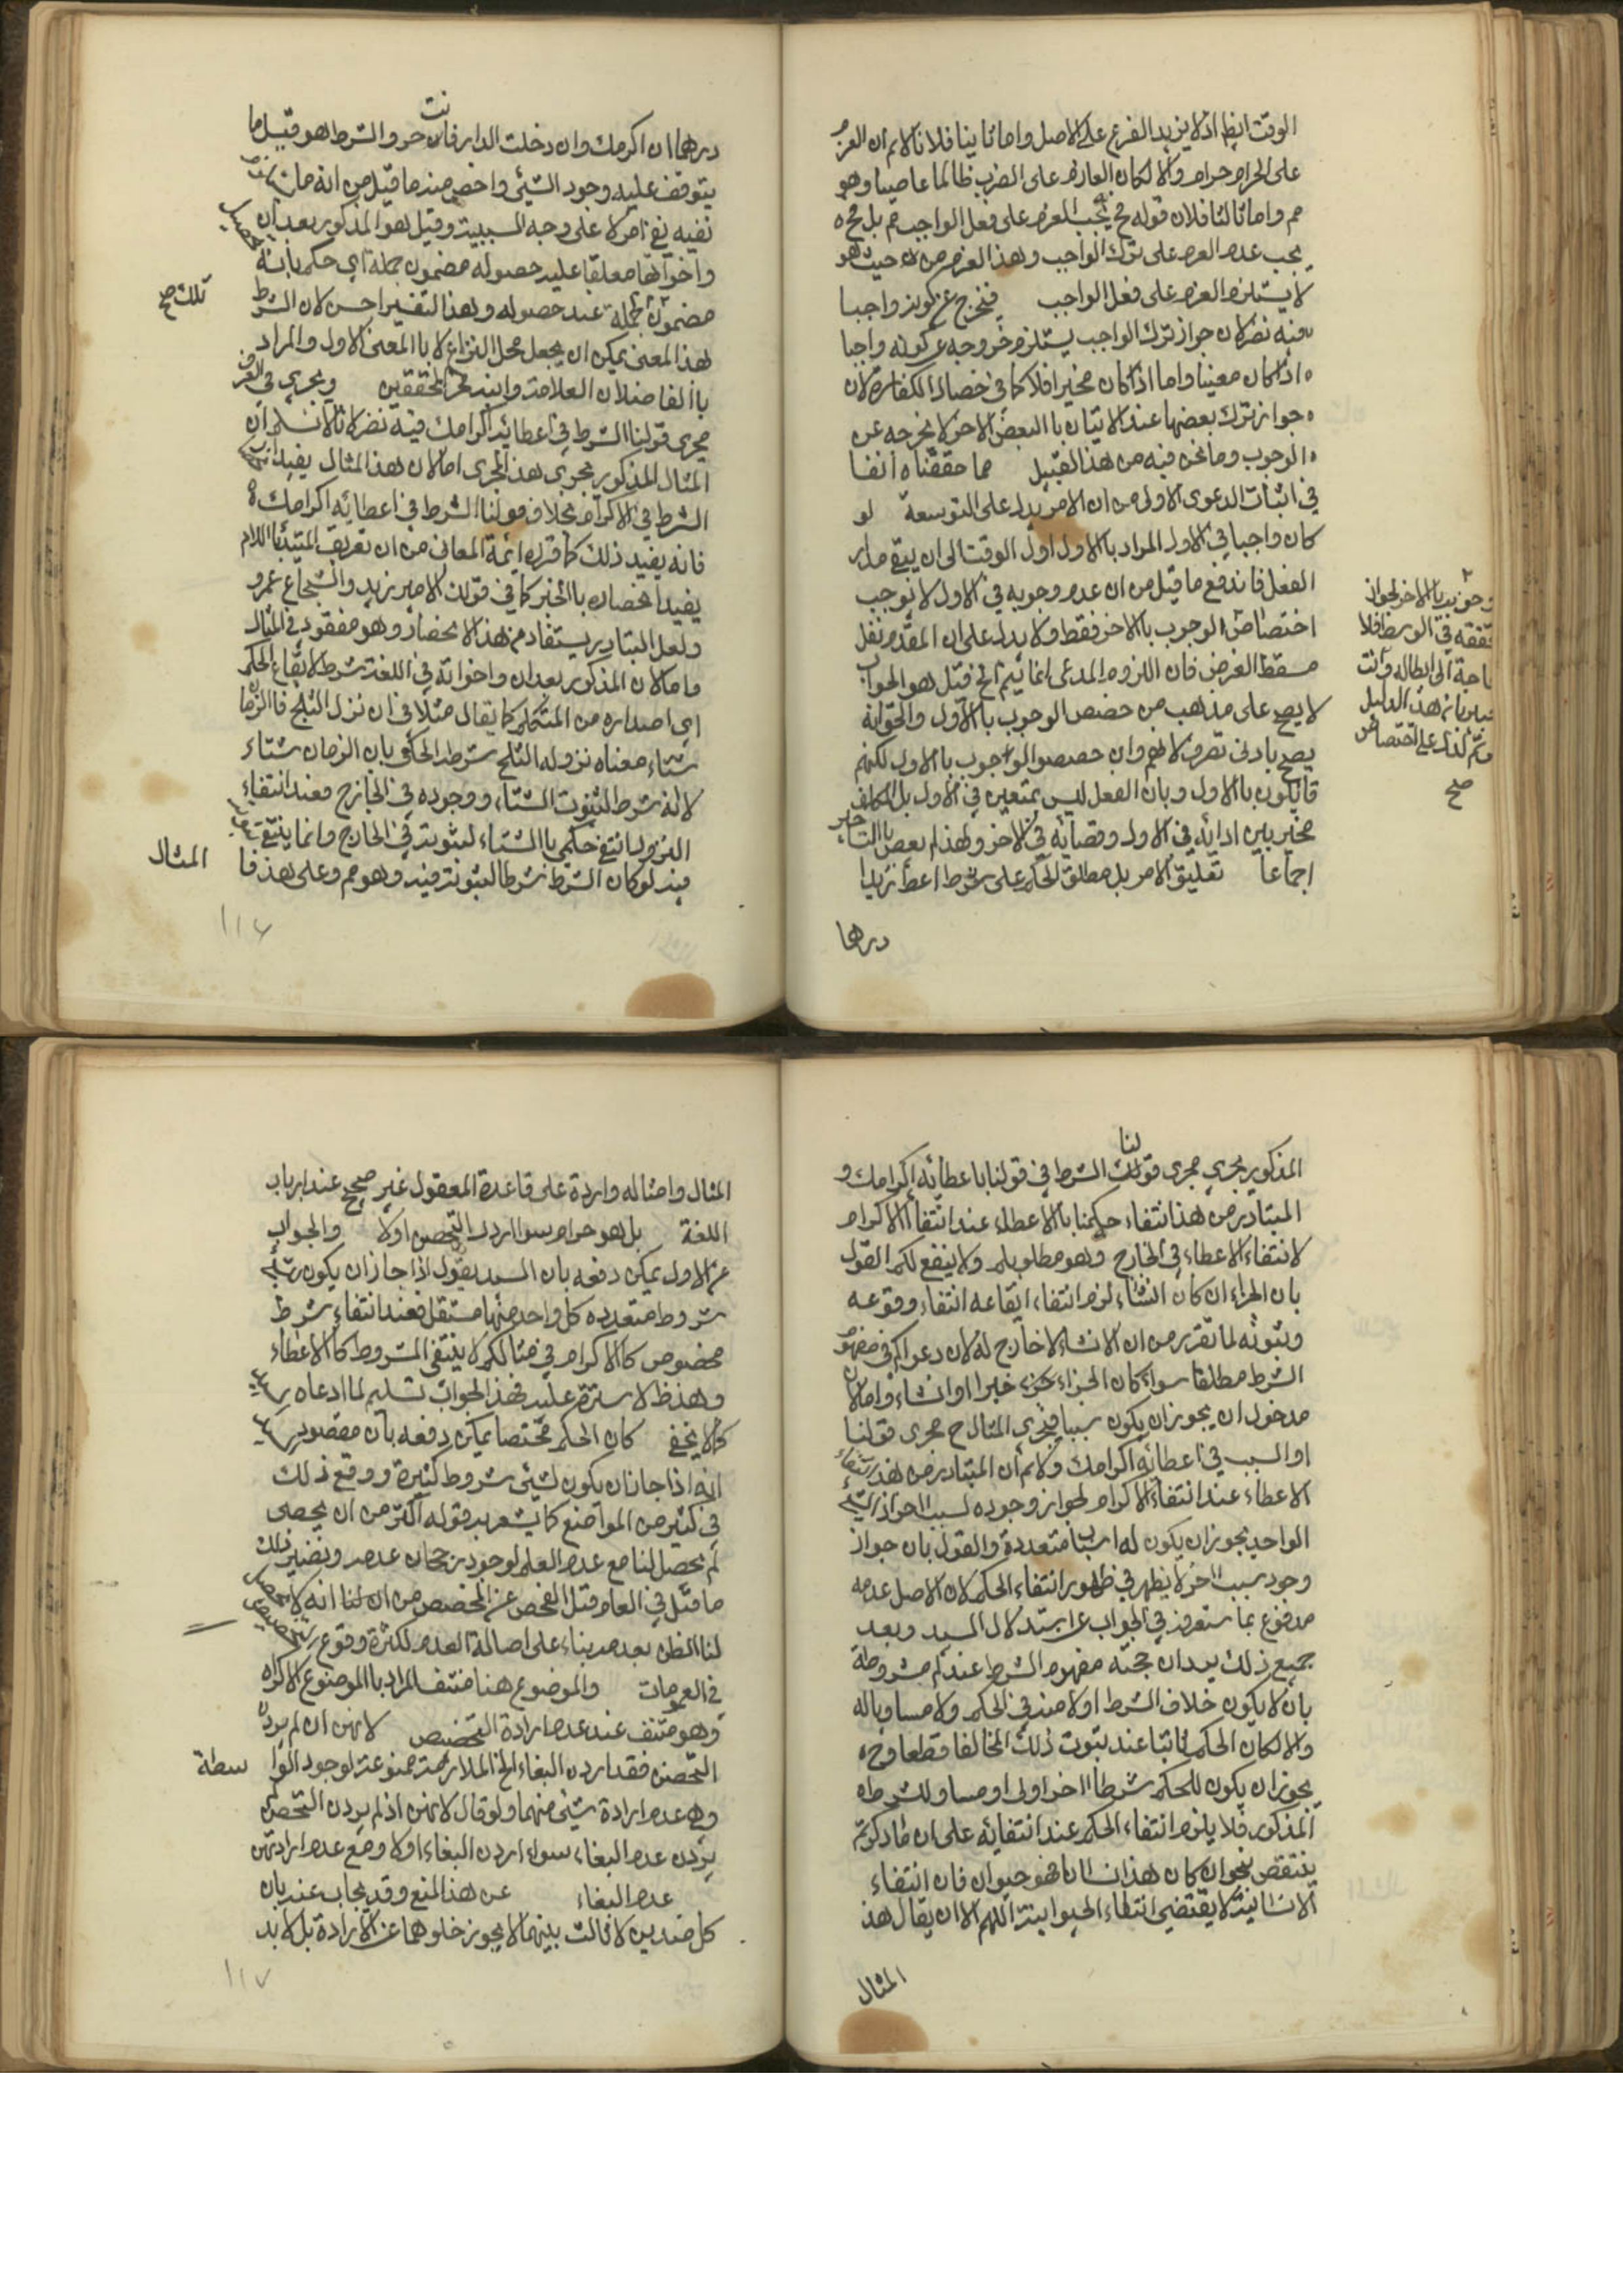 الوقت ايظ اذ لا يزيد الفرع على الاصل واما ثانيا فلانا لانم ان العزم
على الحرام حرام والا لكان العازم على الضرب ظالما عاصيا وهو
مم واما ثالثا فلان قوله مح يجب العزم على فعل الواجب مم بل مح ه
يجب عدم العزم على ترك الواجب وهذا العزم من حيث هو
لا يستلزم العزم على فعل الواجب فيخرج عن كونه واجبا
فيه نضر لان جواز ترك الواجب يستلزم خروجه عن كونه واجبا
اذا كان معينا واما اذا كان مخيرا فلا كما في خصال الكفارة لان
جواز ترك بعضها عند الاتيان باالبعض الاخر لا يخرجه عن
الوجوب وما نحن فيه من هذا القبيل مما حققناه انفا
في اثبات الدعوى الاولى من ان الامر يدل على التوسعة لو
كان واجبا في الاول المراد باالاول اول الوقت الى ان يبقى مقدار
الفعل فاندفع ما قيل من ان عدم وجوبه في الاول لا يوجب
اختصاص الوجوب باالاخر فقط ولا يدل على ان المقدم نفل
مسقط الغرض فان اللزوم المدعى انما يتم الخ قيل هو الجواب
لا يصح على مذهب من خصص الوجوب باالاول والحق انه
يصح بادنى تصرف لانهم وان خصصوا الواجوب باالاول لكنهم
قايلون باالاول وبان الفعل ليس بمتعين في الاول بل المكلف
مخير بين ادائه في الاول وقضائه في الاخر ولهذا لم يعص باالتاخير
اجماعا تعليق الامر بل مطلق الحكم على شرط اعط زيدا
درهما
وجوبه باالاخر لجواز
تحققه في الوسط فلا
حاجة الى ابطاله وانت
خبير بان هذا الدليل
على اختصاص
صح
درهما ان اكرمك وان دخلت الدار فانت حر والشرط هو قيل ما
يتوقف عليه وجود الشيئ واخصر منه ما قيل من انه ما
نفيه نفي امر لا على وجه السببية وقيل هو المذكور بعد ان
واخواتها معلقا عليه حصوله مضمون جملة اي حكم بانه
تلك صح
مضمون جملة عند حصوله وهذا التفسير احسن لان الشرط
لهذا المعنى يمكن ان يجعل محل النزاع لا باالمعنى الاول والمراد
باالفاضلان العلامة وابنه فخر المحققين ويجري في العرف
مجرى قولنا الشرط في اعطائه اكرامك فيه نضر لانا لا نسلم ان
المثال المذكور يجري هذا المجرى اما لان هذا المثال يفيد
الشرط في الاكرام بخلاف قولنا الشرط في اعطائه اكرامك
فانه يفيد ذلك كما قرره ايمة المعاني من ان تعريف المبتدأ باللام
يفيد انحصاره باالخبر كما في قولك الامير زيد والشجاع عمرو
ولعل التبادر يستفاد من هذا الانحصار وهو مفقود في المثال
واما لان المذكور بعد ان واخواته في اللغة شرط لايقاع الحكم
اي اصداره من المتكلم كما يقال مثلا في ان نزل الثلج فاالزمان
شتاء معناه نزول الثلج شرط الحكم بان الزمان شتاء
لا انه شرط لثبوت الشتاء ووجوده في الخارج فعند انتفاء
النزول انتفى حكمي باالشتاء لثبوته في الخارج وانما ينتفي
فيه لو كان الشرط شرطا لثبوته فيه وهو مم وعلى هذا فا
المثال
١١٦
المذكور يجري مجرى قولنا الشرط في قولنا باعطائه اكرامك و
المتبادر من هذا انتفاء حكمنا باالاعطاء عند انتفاء الاكرام
لا انتفاء الاعطاء في الخارج وهو مطلوبكم ولا ينفع لكم القول
بان الجزاء ان كان انشاء لزم انتفاء ايقاعه انتفاء وقوعه
وثبوته لما تقرر من ان الانشاء لا خارج له لان دعواكم في مفهوم
الشرط مطلقا سواء كان الجزاء خبرا او انشاء واما لان
مدخول ان يجوز ان يكون سببا فيجري المثال ح مجرى قولنا
او السبب في اعطائه اكرامك ولا نم ان المتبادر من هذا انتفاء
الاعطاء عند انتفاء الاكرام لجواز وجوده لسبب اخر اذ الشيئ
الواحد يجوز ان يكون له اسباب متعددة والقول بان جواز
وجود سبب اخر لا يظهر في ظهور انتفاء الحكم لان الاصل عدمه
مدفوع بما ستعرف في الجواب عن استدلال السيد وبعد
جميع ذلك يرد ان حجته مفهوم الشرط عندكم مشروطة
بان لا يكون خلاف الشرط اولا منه في الحكم ولا مساويا له
والا لكان الحكم ثابتا عند ثبوت ذلك المخالف قطعا وح ه
يجوز ان يكون للحكم شرطا اخر اولى او مساو للشرط
المذكور فلا يلزم انتفاء الحكم عند انتفائه على ان ما ذكرتم
ينتقض بنحو ان كان هذا انسانا فهو حيوان فان انتفاء
الانسانية لا يقتضي انتفاء الحيوانية اللهم الا ان يقال هذا
المثال
المثال وامثاله واردة على قاعدة المعقول غير صحيح عند ارباب
اللغة بل هو حرام سوا اردن التحصن اولا والجواب
عن الاول يمكن دفعه بان السيد يقول اذا جاز ان يكون لشيئ
شروط متعدده كل واحد منها مستقل فعند انتفاء شرط
مخصوص كاالاكرام في مثالكم لا ينتفى المشروط كاالاعطاء
وهذا ظ لا سترة عليه فهذا الجواب تسليم لما ادعاه
كما لا يخفى كان الحكم مختصا يمكن دفعه بان مقصود
انه اذا جاز ان يكون لشيئ شروط كثيرة ووقع ذلك
في كثير من المواضع كما يشعر به قوله اكثر من ان يحصى
لم يحصل لنا مع عدم العلم لوجوده رجحان عدمه ونضير ذلك
ما قيل في العام قبل الفحص عن المخصص من ان لنا انه لا يحصل
لنا الظن بعدمه بناء على اصالة العدم لكثرة وقوع التخصيص
في العمومات والموضوع هنا منتف المراد باالموضوع الاكراه
وهو منتف عند عدم ارادة التحصن لانهن ان لم يردن
التحصن فقد اردن البغاء الخ الملازمة ممنوعة لوجود الوا
سطة
وهي عدم ارادة شيئ منهما ولو قال لانهن اذ لم يردن التحصن
يردن عدم البغاء سواء اردن البغاء اولا ومع عدم ارادتهن
عدم البغاء عن هذا المنع وقد يجاب عنه بان
كل ضدين لا ثالث بينهما لا يجوز خلوهما عن الارادة بل لا بد
١١٧